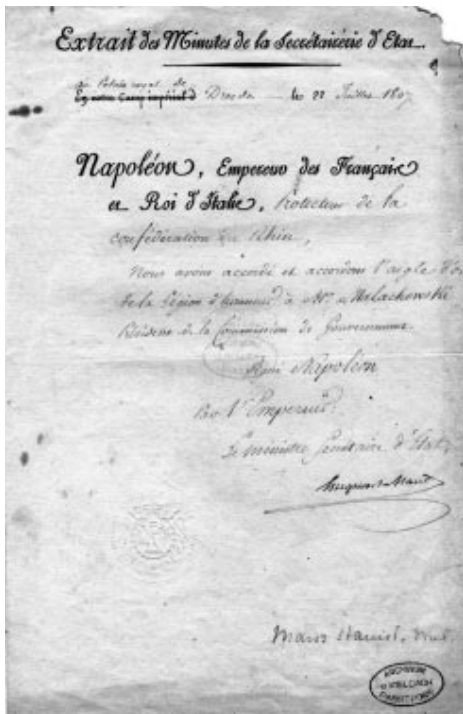 Extrait des Minutes de la Secrétairerie d'Etat.
au Palais royal de
Dresde le 22 Juillet 1807
Napoléon, Empereur des Français
et Roi d'Italie, Protecteur de la
confédération du Rhin,
Nous avons accordé et accordons l'aigle d'or
de la légion d'honneur à Mr. Malachowski
de la Commission de Gouvernement
Signé Napoléon
Par l'Empereur
Le ministre Secrétaire d'Etat
Hugues B. Maret
ARCHIWUM